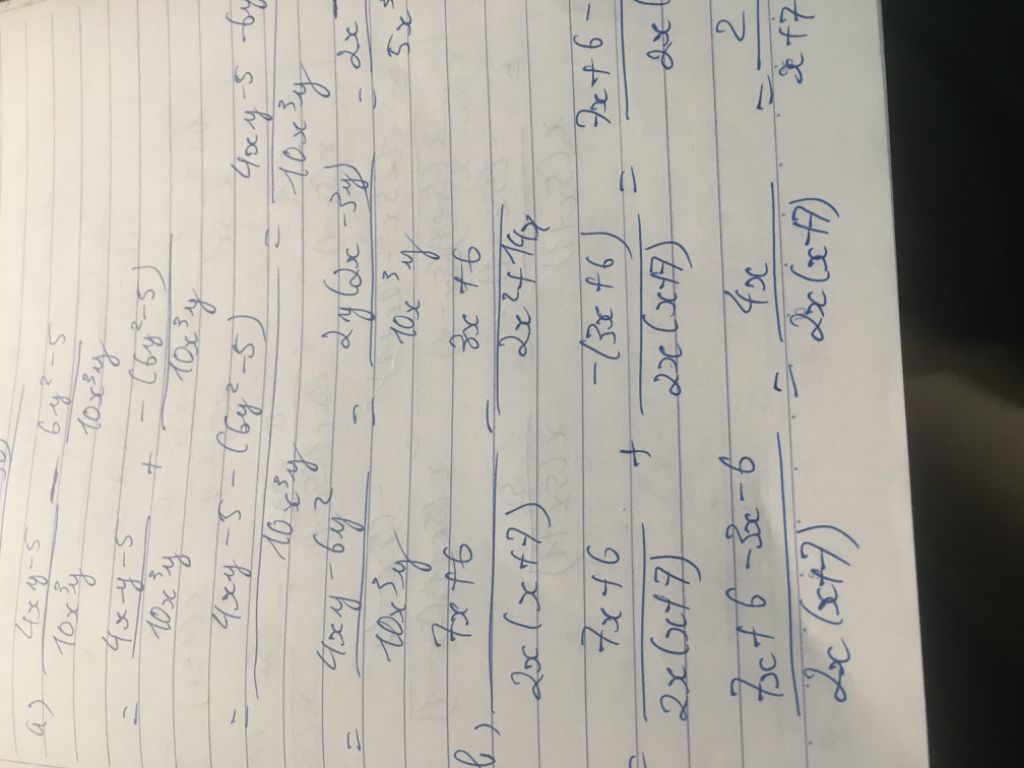 a) (4xy-5)/(10x³y) - (6y²-5)/(10x³y)
= (4xy-5)/(10x³y) + (-(6y²-5))/(10x³y)
= (4xy-5-(6y²-5))/(10x³y) = (4xy-5-6y)/(10x³y)
= (4xy-6y²)/(10x³y) = (2y(2x-3y))/(10x³y) = (2x-)/(5x³)
b) (7x+6)/(2x(x+7)) - (3x+6)/(2x²+14x)
= (7x+6)/(2x(x+7)) + (-(3x+6))/(2x(x+7)) = (7x+6-)/(2x()
(7x+6-3x-6)/(2x(x+7)) = (4x)/(2x(x+7)) = (2)/(x+7)